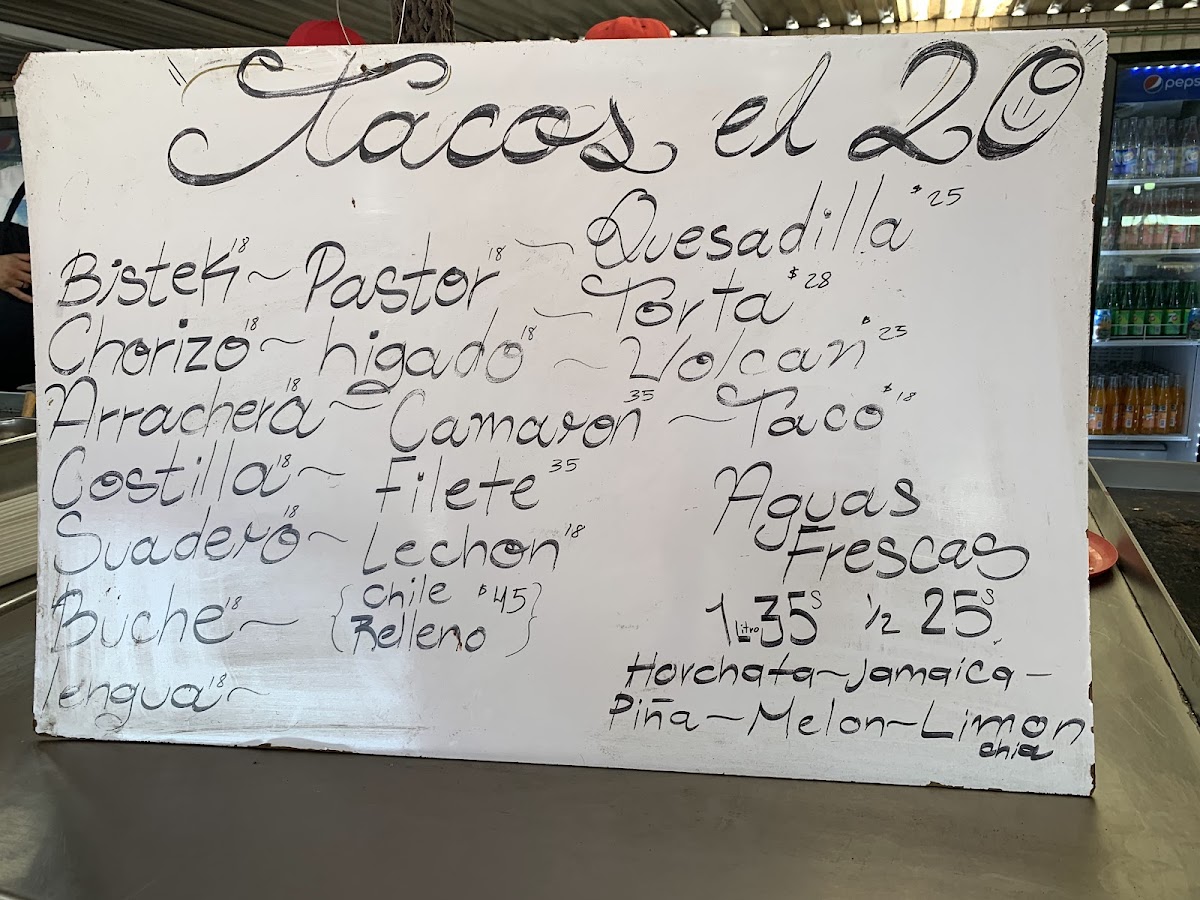 Tacos el 20
Bistek 18 ~ Pastor 18 ~ Quesadilla $25
Chorizo 18 ~ higado 18 ~ Torta $28
Arrachera 18 ~ Camaron 35 ~ Volcan $25
Costilla 18 ~ Filete 35 ~ Taco $18
Suadero 18 ~ Lechon 18
Buche 18 ~ {Chile Relleno $45}
lengua 18 ~
Aguas
Frescas
1 Litro 35$ 1/2 25$
Horchata ~ Jamaica -
Piña ~ Melon ~ Limon
chia
pepsi